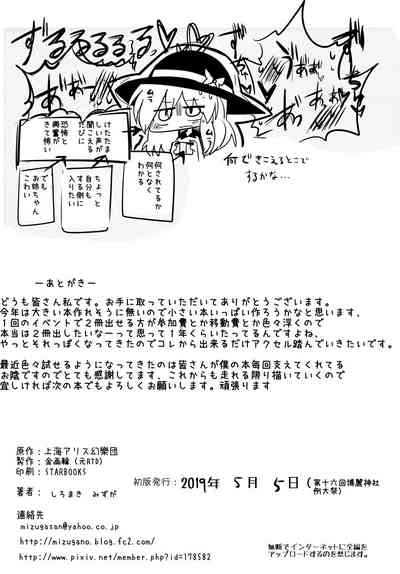 ずるるるるっ
あっ
あぁっ
けたたま
しい声が
聞こえる
たびに
恐怖と
興奮が
きて怖い
何されてるか
何となく
わかる
ちょっと
自分も
する側に
入りたい
でも
お姉ちゃん
こわい
何できこえるとこで
するかな…
ーあとがきー
どうも皆さん私です。お手に取っていただいてありがとうございます。
今年は大きい本作れそうに無いので小さい本いっぱい作ろうかなと思います、
1回のイベントで2冊出せる方が参加費とか移動費とか色々浮くので
本当は2冊出したいなーって思って1年くらいたってるんですよね、
やっとそれっぽくなってきたのでコレから出来るだけアクセル踏んでいきたいです。
最近色々試せるようになってきたのは皆さんが僕の本毎回支えてくれてる
お陰ですのでとても感謝してます、これからも走れる限り描いていくので
宜しければ次の本でもよろしくお願いします。頑張ります
原作：上海アリス幻樂団
製作：金画輪（元RTD）
印刷：STARBOOKS
初版発行：2019年 5月 5日（第十六回博麗神社
例大祭）
著者： しろまき みずが
連絡先
mizugasan@yahoo.co.jp
http://mizugano.blog.fc2.com/
http://www.pixiv.net/member.php?id=178582
無断でインターネットに全編を
アップロードするのを禁じます。